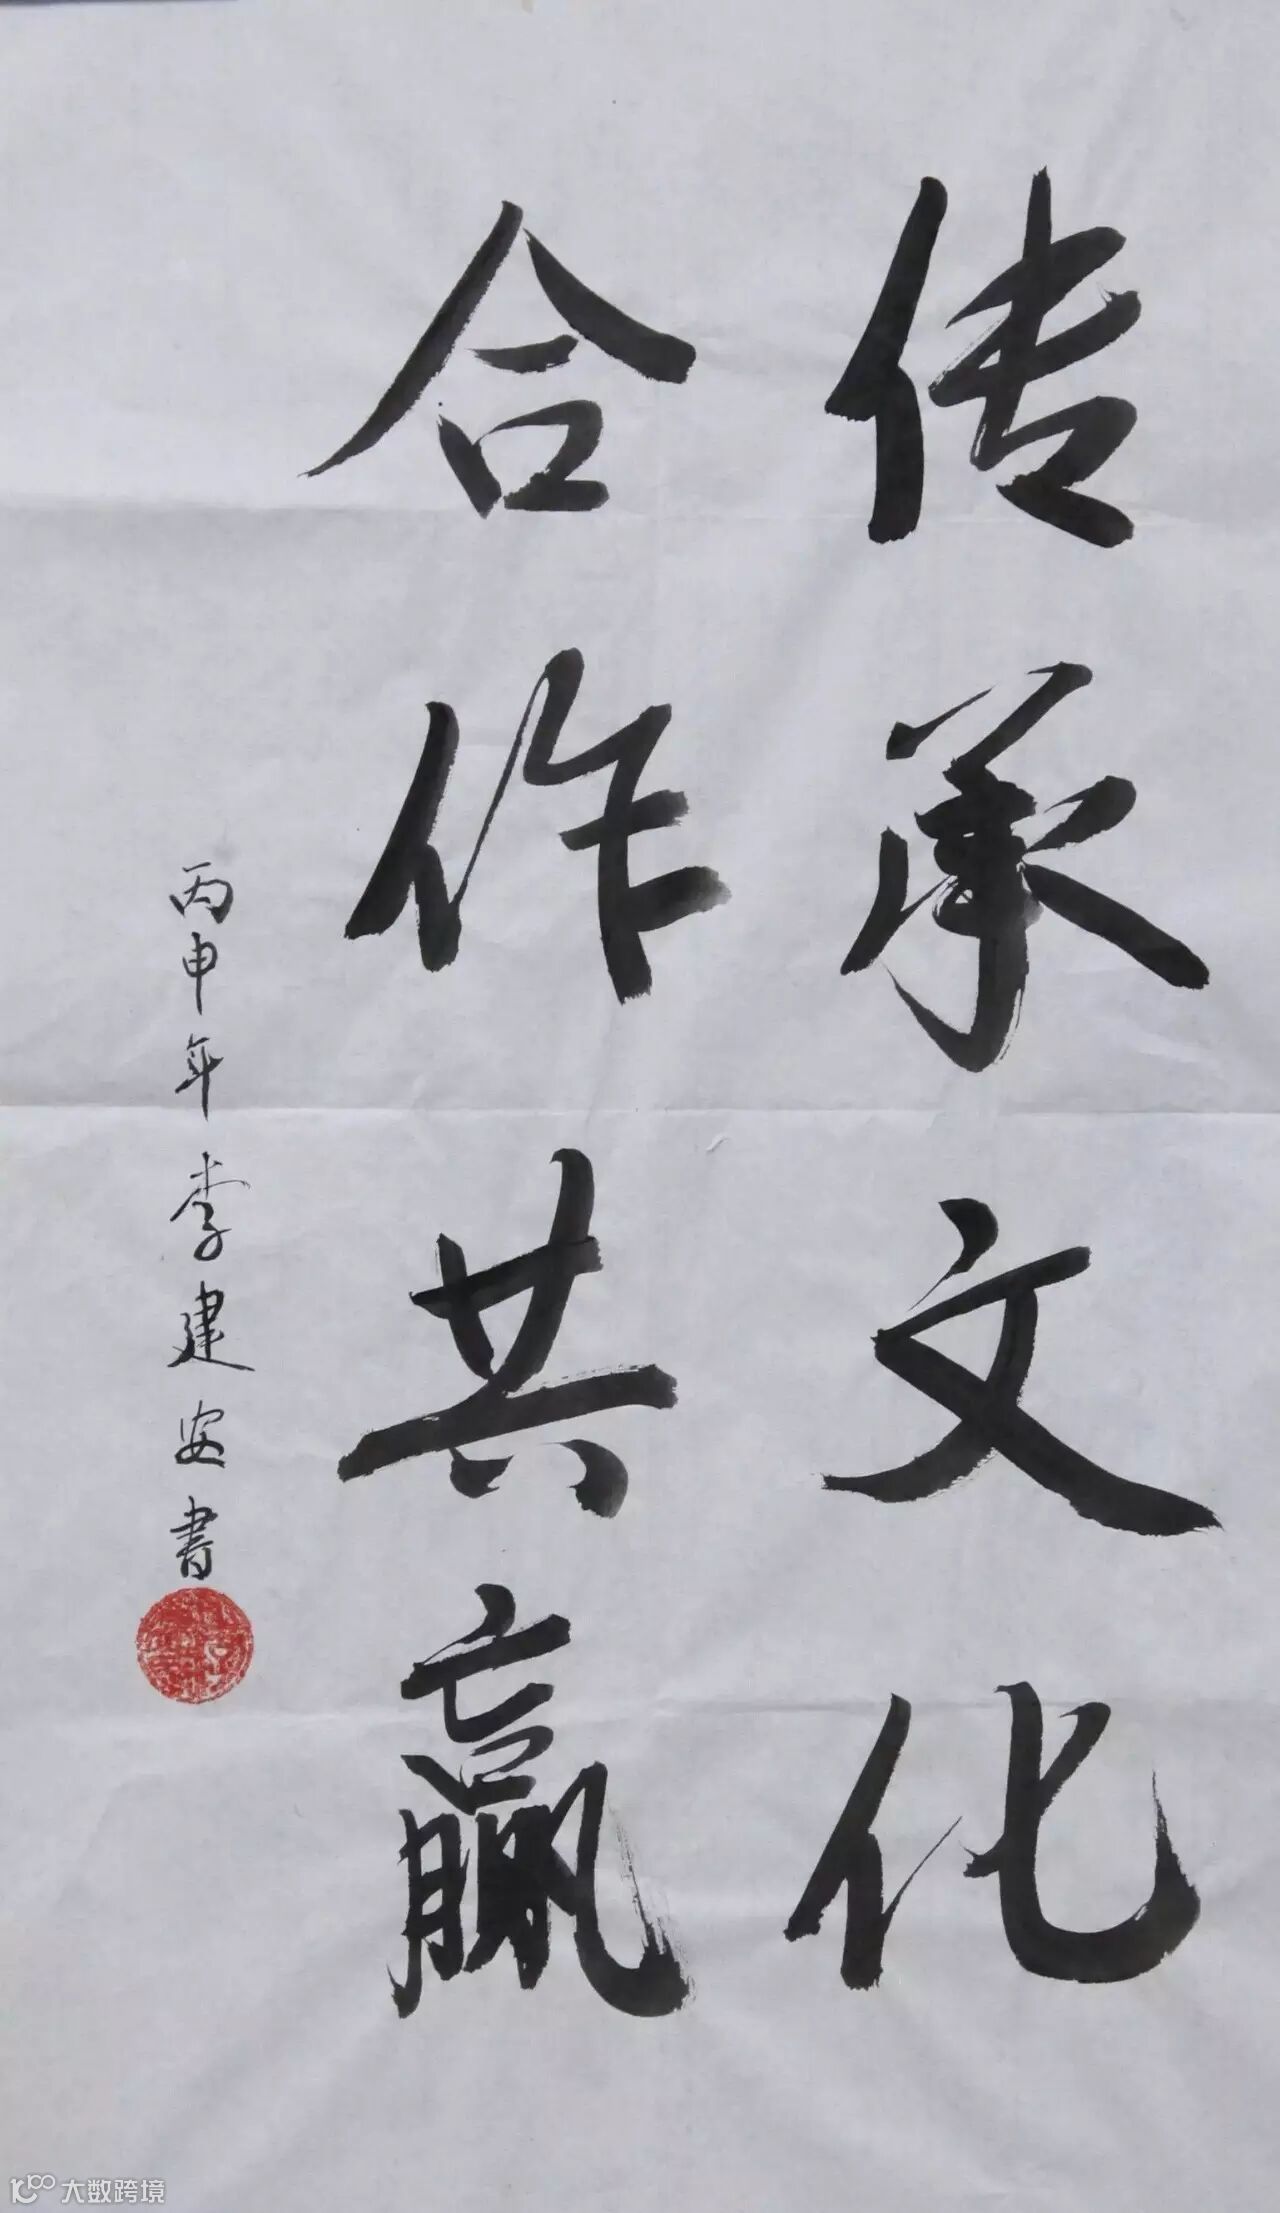 传承文化
合作共赢
丙申年李建安书
大数跨境